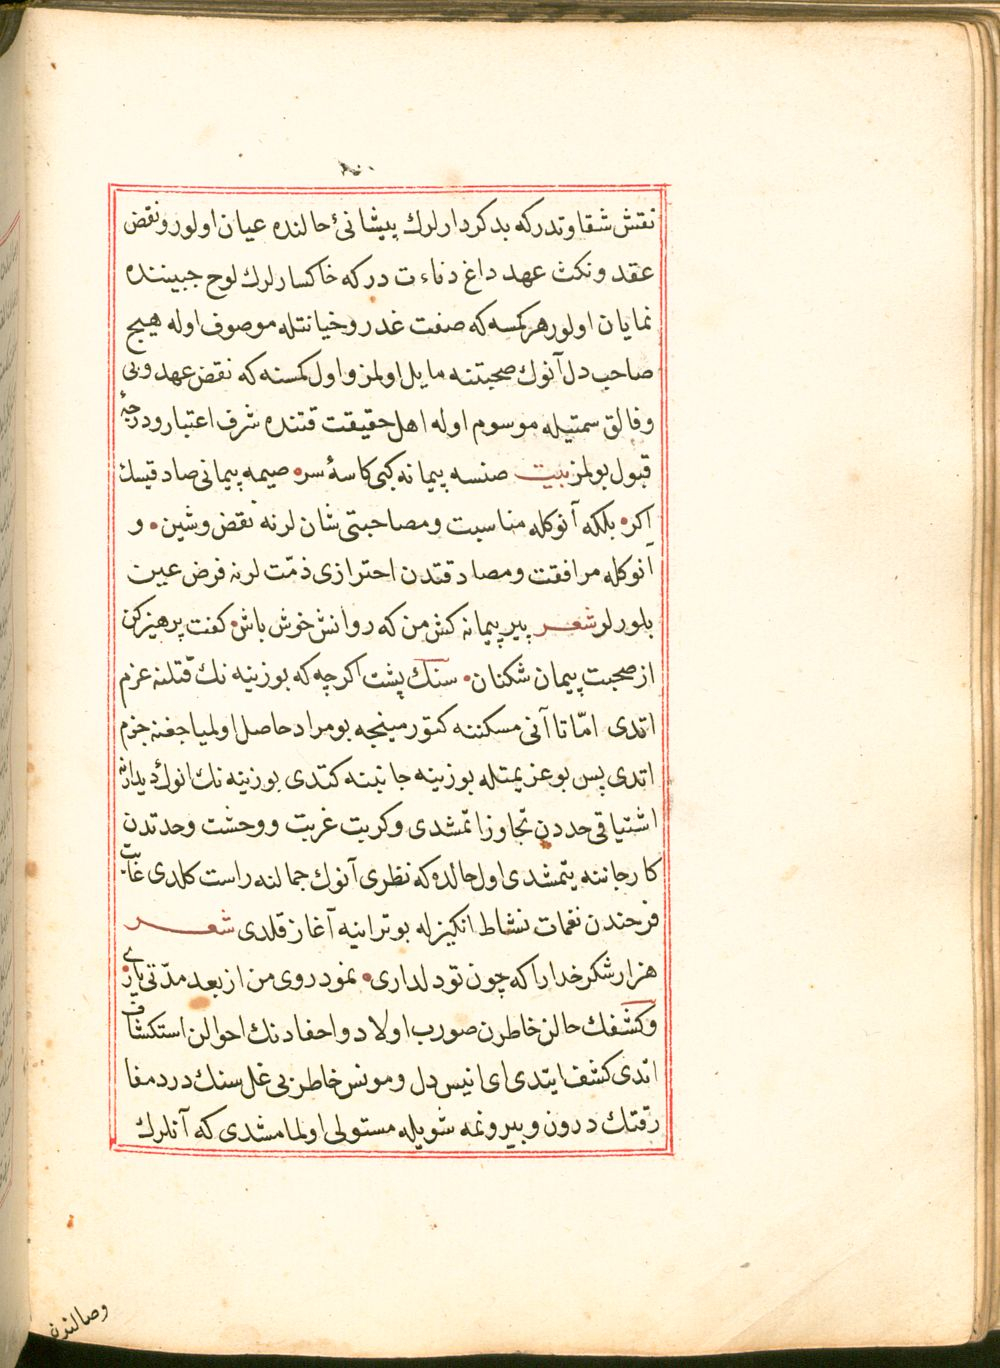 نقش شقاوتدركه بدكردارلرك پیشانئ حالنده عیان اولور ونقض
عقد ونكث عهد داغ دناءت دركه خاكسارلرك لوح جبیننده
نمایان اولور هركمسه كه صفت غدر وخیانتله موصوف اوله هیچ
صاحب دل آنوك صحبتنه مایل اولمز و اول كمسنه كه نقض عهد وبی
وفالق سمتیله موسوم اوله اهل حقیقت قتنده شرف اعتبار ودرجۀ
قبول بولمز بیت صنسه پیمانه كبی كاسۀ سره صیمه پیمانی صادقیسك
اكر بلكه آنوكله مناسبت ومصاحبتی شان لرنه نقض وشین و
آنوكله مرافقت ومصادقتدن احترازی ذمّت لرنه فرض عین
بلورلر شعر پیر پیمانه كش من كه روانش خوش باش كفت پرهیز كن
از صحبت پیمان شكنان سنك پشت اكرچه كه بوزینه نك قتلنه عزم
اتدی امّا تا آنی مسكننه كتورمینجه بو مراد حاصل اولمیاجغنه جزم
اتدی پس بو عزیمتله بوزینه جانبنه كتدی بوزینه نك انوك دیدارنه
اشتیاقی حددن تجاوز اتمشدی وكربت غربت ووحشت وحدتدن
كارجاننه یتمشدی اول حالده كه نظری آنوك جمالنه راست كلدی غایت
فرحندن نغمات نشاط انكیزله بو ترانیه آغاز قلدی شعر
هزار شكر خدارا كه چون تو دلداری نمود روی من از بعد مدّتی یاری
وكشفك حالن خاطرن صورب اولاد و احفادنك احوالن استكشاف
اتدی كشف ایتدی ای انیس دل ومونس خاطر بی غل سنك درد مفا
رقتك درون وبیرونمه شویله مستولی اولمامشدی كه آنلرك
وصالندن